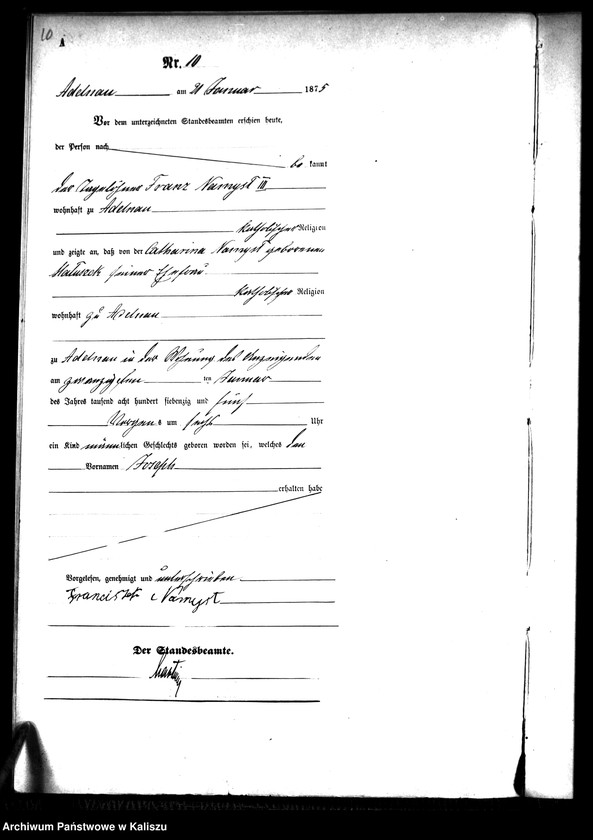 10
A
Nr. 10
Adelnau am 21 Januar 1875
Vor dem unterzeichneten Standesbeamten erschien heute,
der Person nach
be kannt
der Tagelöhner Franz Namyst III
wohnhaft zu Adelnau
katholischer Religion
und zeigte an, daß von der Catharina Namyst geborenen
seiner Ehefrau
katholischer Religion
wohnhaft zu Adelnau
zu Adelnau in der Wohnung des Anzeigenden
am ten Januar
des Jahres tausend acht hundert siebenzig und fünf
Morgens um sechs Uhr
ein Kind männlichen Geschlechts geboren worden sei, welches den
Vornamen Joseph
erhalten habe
Vorgelesen, genehmigt und unterschrieben
Namyst
Der Standesbeamte.
Archiwum Państwowe w Kaliszu